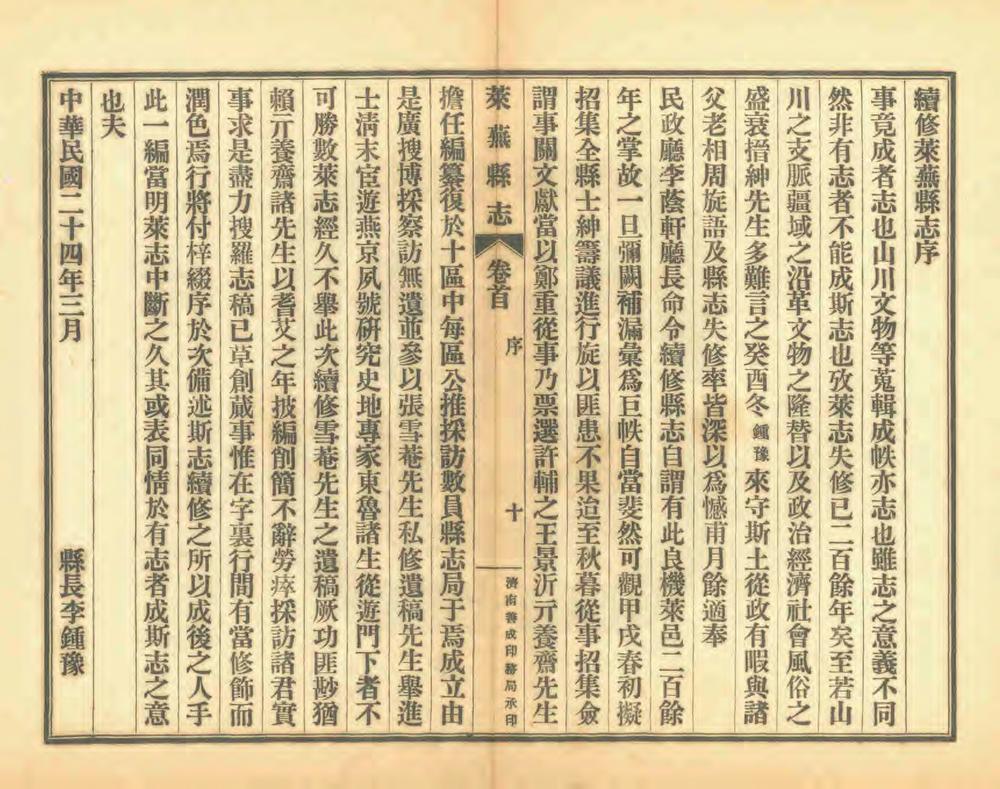 續修萊蕪縣志序
事竟成者志也山川文物等蒐輯成帙亦志也雖志之意義不同
然非有志者不能成斯志也攷萊志失修已二百餘年矣至若山
川之支脈疆域之沿革文物之隆替以及政治經濟社會風俗之
盛衰搢紳先生多難言之癸酉冬鍾豫來守斯土從政有暇與諸
父老相周旋語及縣志失修率皆深以爲憾甫月餘適奉
民政廳李蔭軒廳長命令續修縣志自謂有此良機萊邑二百餘
年之掌故一旦彌闕補漏彙爲巨帙自當斐然可觀甲戌春初擬
招集全縣士紳籌議進行旋以匪患不果迨至秋暮從事招集僉
謂事關文獻當以鄭重從事乃票選許輔之王景沂亓養齋先生
萊蕪縣志 卷首 序 十 濟南善成印務局承印
擔任編纂復於十區中每區公推採訪數員縣志局于焉成立由
是廣搜博採察訪無遺並參以張雪菴先生私修遺稿先生舉進
士淸末宦遊燕京夙號硏究史地專家東魯諸生從遊門下者不
可勝數萊志經久不舉此次續修雪菴先生之遺稿厥功匪尠猶
賴亓養齋諸先生以耆艾之年披編削簡不辭勞瘁採訪諸君實
事求是盡力搜羅志稿已草創蕆事惟在字裏行間有當修飾而
潤色焉行將付梓綴序於次備述斯志續修之所以成後之人手
此一編當明萊志中斷之久其或表同情於有志者成斯志之意
也夫
中華民國二十四年三月 縣長李鍾豫